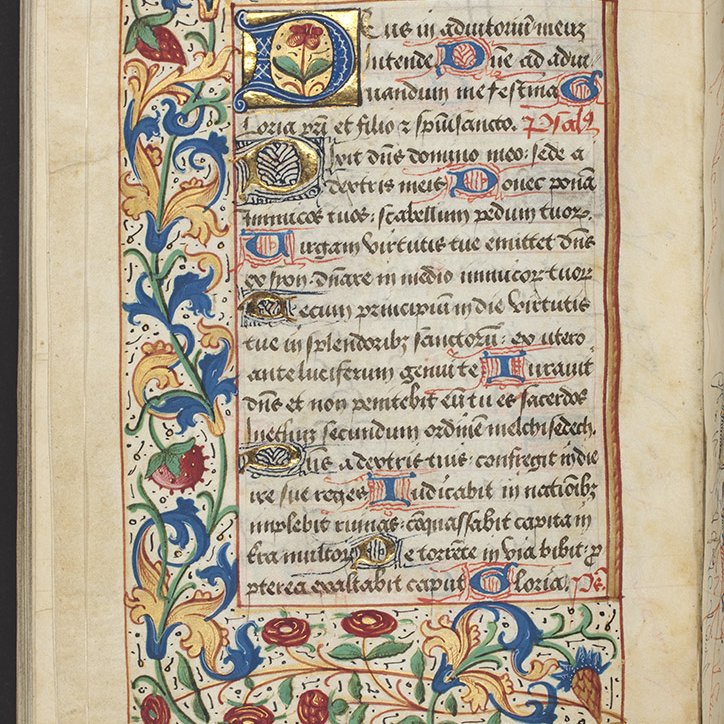 Deus in adiutoriũ meuz
intende Dñe ad adiu
uandum me festina G
loria pri et filio z spiui sancto. Psal9
Dixit dñs domino meo: sede a
dextris meis Donec ponã
inimicos tuos: scabellum pedum tuoꝝ
Uirgam virtutis tue emittet dñs
ex syon: dñare in medio inimicoꝝ tuoꝝ
Tecum principium in die virtutis
tue in splendoribꝫ sanctorũ: ex utero
ante luciferum genui te Iurauit
dñs et non penitebit eũ tu es sacerdos
in eternuꝫ secundum ordinẽ melchisedech.
Dñs a dextris tuis: confregit in die
ire sue reges Iudicabit in nationibꝫ
implebit ruinas: cõquassabit capita in
terra multoꝝ De torrẽte in via bibit: ꝓ
pterea exaltabit caput Gloria. Ps̃.